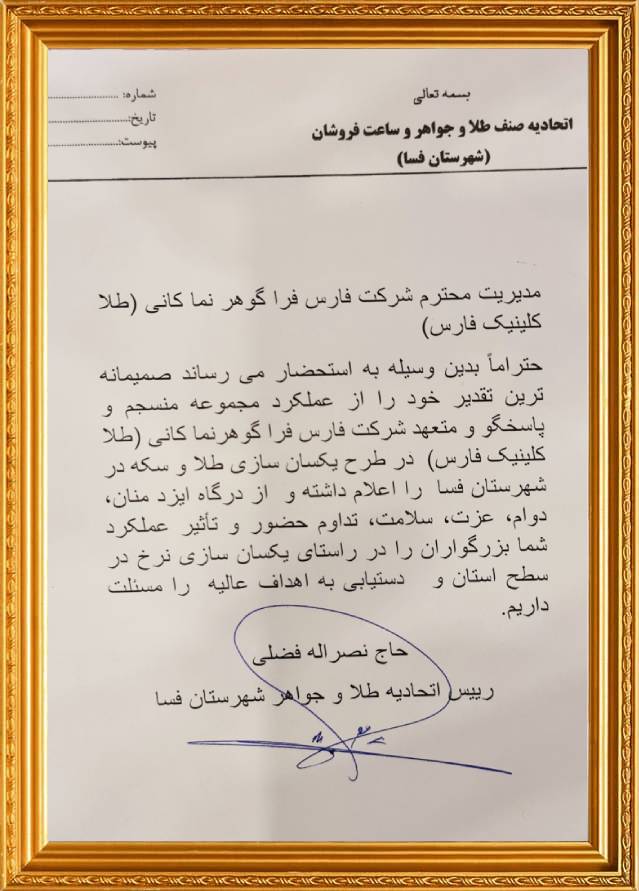 بسمه تعالی
اتحادیه صنف طلا و جواهر و ساعت فروشان
(شهرستان فسا)
شماره: ........................
تاریخ:........................
پیوست:........................
مدیریت محترم شرکت فارس فرا گوهر نما کانی (طلا
کلینیک فارس)
حتراماً بدین وسیله به استحضار می رساند صمیمانه
ترین تقدیر خود را از عملکرد مجموعه منسجم و
پاسخگو و متعهد شرکت فارس فرا گوهرنما کانی (طلا
کلینیک فارس) در طرح یکسان سازی طلا و سکه در
شهرستان فسا را اعلام داشته و از درگاه ایزد منان،
دوام، عزت، سلامت، تداوم حضور و تأثیر عملکرد
شما بزرگواران را در راستای یکسان سازی نرخ در
سطح استان و دستیابی به اهداف عالیه را مسئلت
داریم.
حاج نصراله فضلی
رییس اتحادیه طلا و جواهر شهرستان فسا